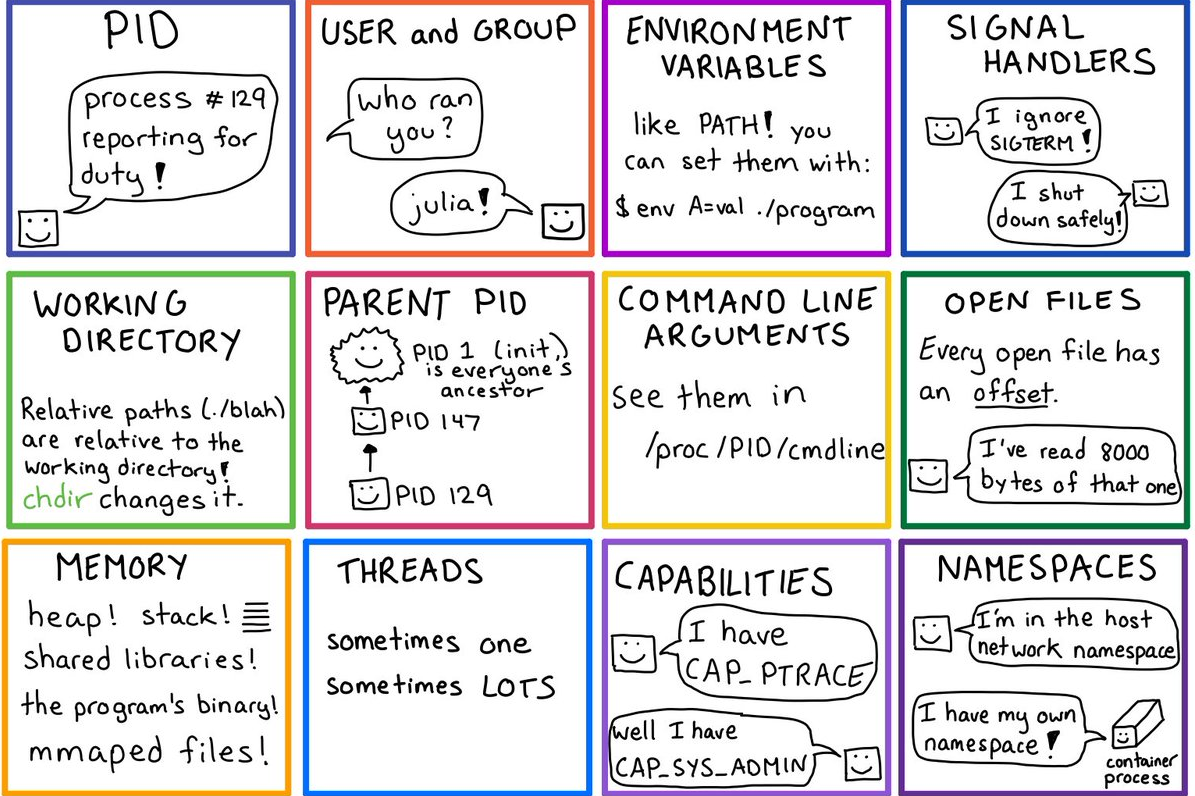 PID
process #129
reporting for
duty!
USER and GROUP
who ran
you?
julia!
ENVIRONMENT
VARIABLES
like PATH! you
can set them with:
$ env A=val ./program
SIGNAL
HANDLERS
I ignore
SIGTERM!
I shut
down safely!
WORKING
DIRECTORY
Relative paths (./blah)
are relative to the
working directory!
chdir changes it.
PARENT PID
PID 1 (init)
is everyone's
ancestor
PID 147
PID 129
COMMAND LINE
ARGUMENTS
see them in
/proc/PID/cmdline
OPEN FILES
Every open file has
an offset.
I've read 8000
bytes of that one
MEMORY
heap! stack!
shared libraries!
the program's binary!
mmaped files!
THREADS
sometimes one
sometimes LOTS
CAPABILITIES
I have
CAP_PTRACE
well I have
CAP_SYS_ADMIN
NAMESPACES
I'm in the host
network namespace
I have my own
namespace!
container
process